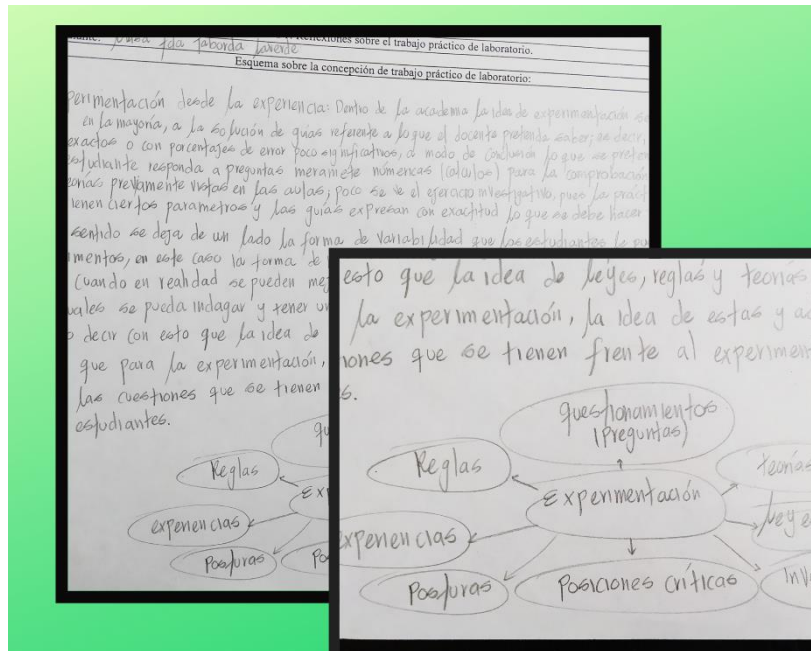 Reflexiones sobre el trabajo práctico de laboratorio.
Esquema sobre la concepción de trabajo práctico de laboratorio:
perimentación desde la experiencia: Dentro de la academia la idea de experimentación se
en la mayoría, a la solución de guías referente a lo que el docente pretenda saber; es decir
exactos o con porcentajes de error poco significativos, a modo de conclusión lo que se preten
estudiante responda a preguntas meramente númericas (calculos) para la comprobación
eorías previamente vistas en las aulas; poco se ve el ejercicio investigativo, pues la práct
ienen ciertos parametros y las guías expresan con exactitud lo que se debe hacer
sentido se deja de un lado la forma de variabilidad que los estudiantes le pu
imentos, en este caso la forma de
Cuando en realidad se pueden mej
uales se pueda indagar y tener un
decir con esto que la idea de
que para la experimentación,
las cuestiones que se tienen
estudiantes.
qu
Reglas
Ex
experiencias
Posturas
Po
esto que la idea de leyes, reglas y teorías
la experimentación, la idea de estas y
iones que se tienen frente al experimen
s.
questionamientos
(Preguntas)
Reglas
teorías
Experimentación
leyes
experiencias
Posturas
Posiciones críticas
Inv